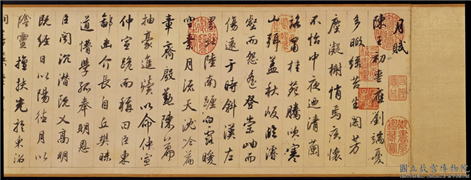 月賦
陳王初喪應劉端憂
多暇綠苔生閣芳
塵凝榭悄焉疚懷
不怡中夜迺清蘭
路肅桂苑騰吹寒
山弭蓋秋阪臨濬
壑而怨遙登崇岫而
傷遠于時斜漢左
界北陸南纏白露曖
空素月流天沈吟
齊章殷勤陳篇
抽豪進牘以命仲宣
仲宣跪而稱曰臣東
鄙幽介長自丘樊昧
道懵學孤奉明恩
臣聞沈潛既義高明
既經日以陽德月以
陰靈擅扶光於東沼
國立故宮博物院